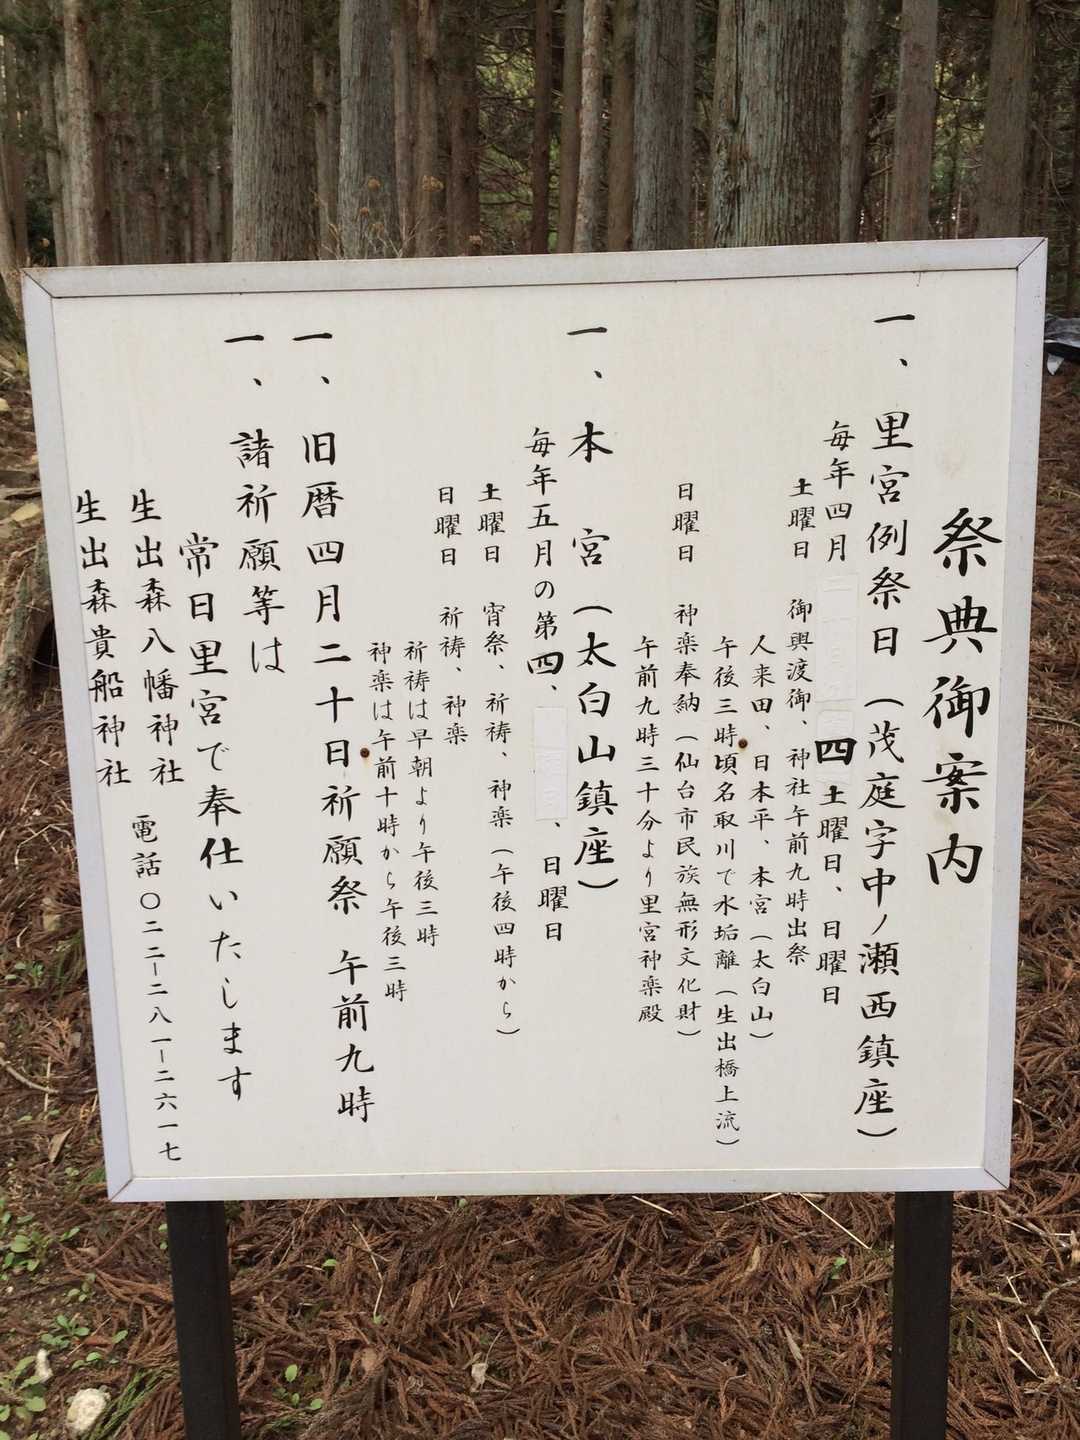 祭典御案内
一、里宮例祭日（茂庭字中ノ瀬西鎮座）
毎年四月 四土曜日、日曜日
土曜日 御輿渡御、神社午前九時出祭
人来田、日本平、本宮（太白山）
午後三時頃名取川で水垢離（生出橋上流）
日曜日 神楽奉納（仙台市民族無形文化財）
午前九時三十分より里宮神楽殿
一、本宮（太白山鎮座）
毎年五月の第四、、日曜日
土曜日 宵祭、祈祷、神楽（午後四時から）
日曜日 祈祷、神楽
祈祷は早朝より午後三時
神楽は午前十時から午後三時
一、旧暦四月二十日祈願祭 午前九時
一、諸祈願等は
常日里宮で奉仕いたします
生出森八幡神社
生出森貴船神社
電話〇二二ー二八一ー二六一七